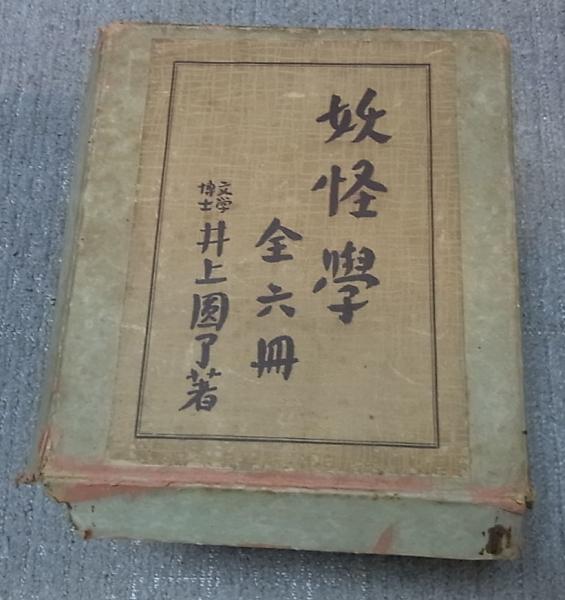 妖怪學
全六冊
文学博士 井上圓了著